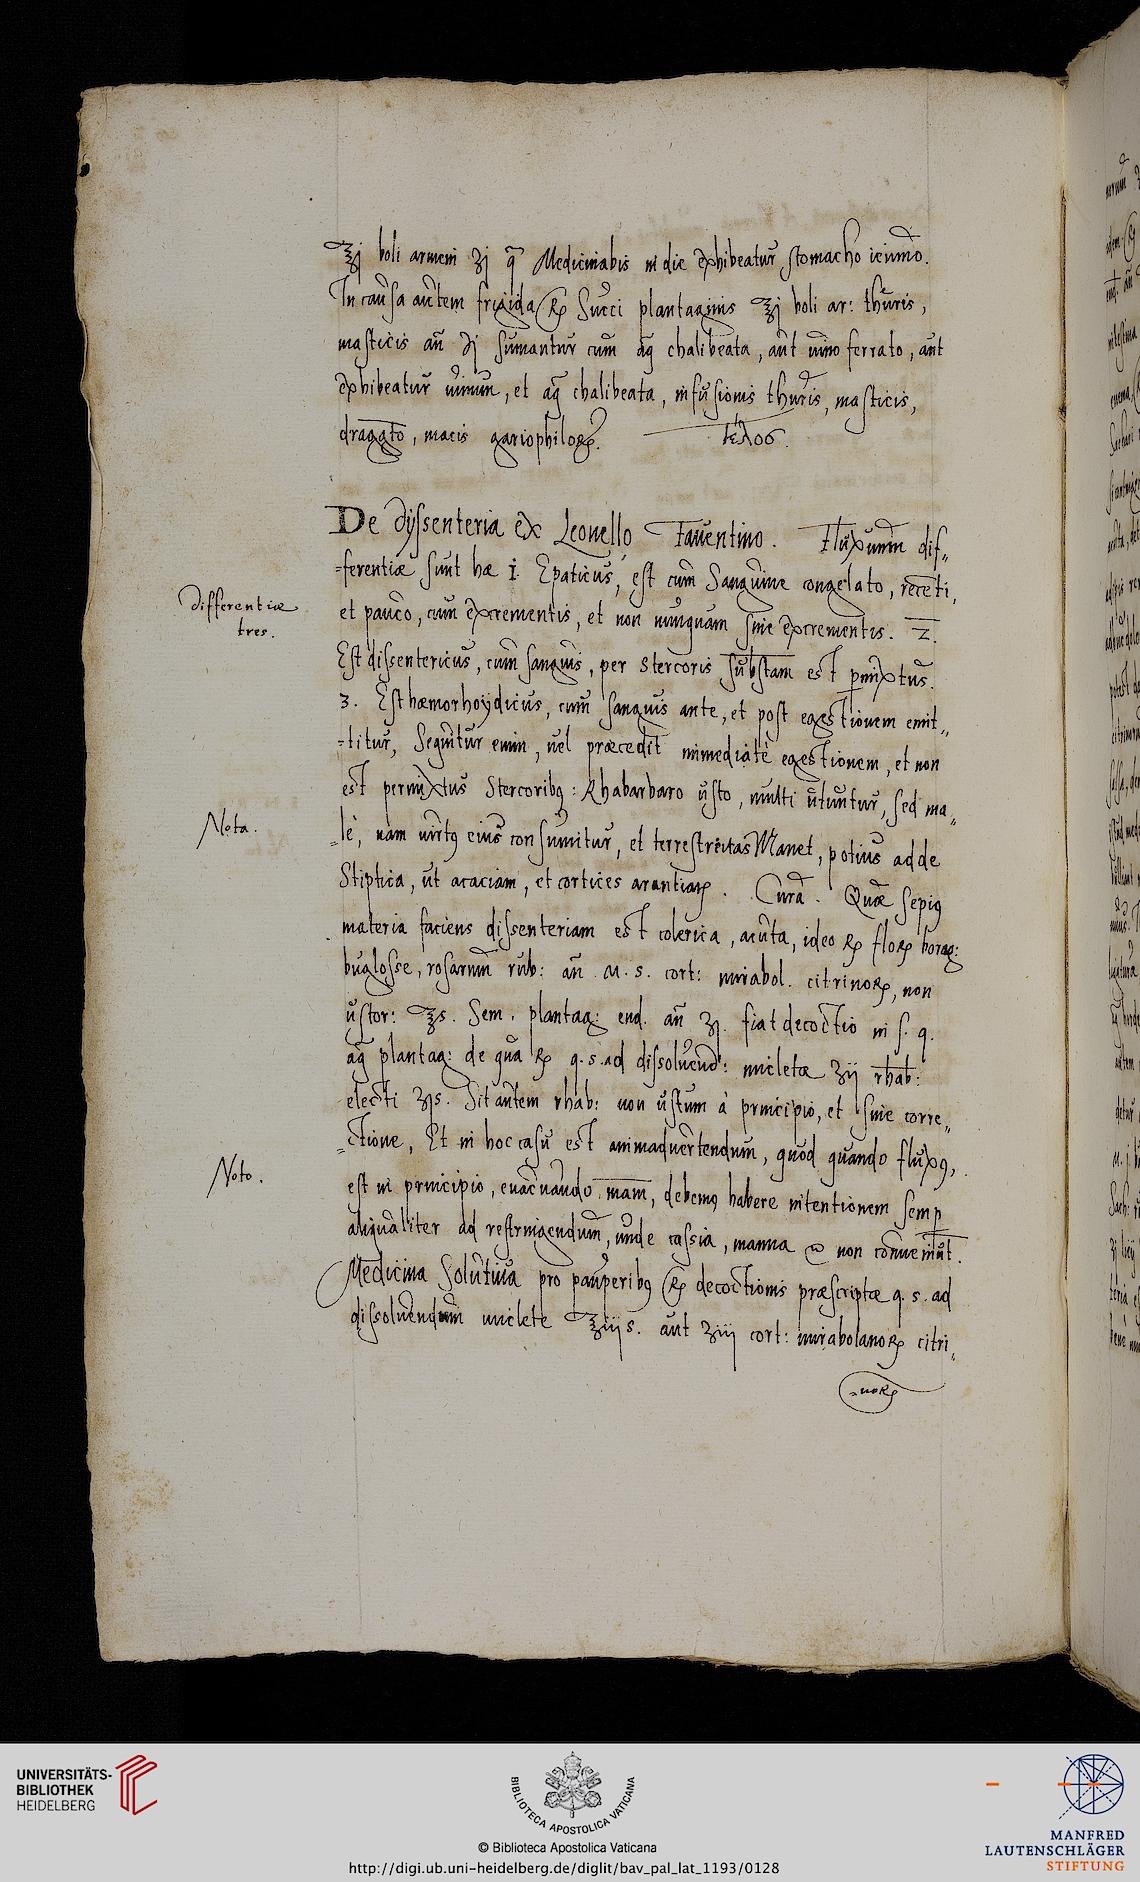 ℥j boli armeni ʒj q̃ Medicinabis in die exhibeatur stomacho ieiuno.
In causa autem frigida ℞ Succi plantaginis ℥j boli ar: thuris,
masticis añ ℈j sumantur cum aq̃ chalibeata, aut uino ferrato, aut
exhibeatur uinum, et aq̃ chalibeata, infusionis thuris, masticis,
draggto, macis gariophiloꝝ. τέλος.
De dyssenteria ex Leonello Fauentino. Fluxuum dif„
differentiæ
tres.
=ferentiæ sunt hæ 1. Epaticus, est cum Sanguine congelato, recēti,
et pauco, cum excrementis, et non nunquam sine excrementis. 2.
Est dissentericus, cum sanguis, per stercoris substam est pmixtus.
3. Est hæmorhoydicus, cum sanguis ante, et post egestionem emit„
=titur, Sequitur enim, uel præcedit immediatè egestionem, et non
est permixtus Stercoribꝰ: Rhabarbaro usto, multi utuntur, sed ma„
Nota.
=lè, nam uirtꝰ eius consumitur, et terrestreitas Manet, potius adde
Stiptica, ut acaciam, et cortices arantiaꝝ. Cura. Quæ sepiꝰ
materia faciens dissenteriam est colerica, acuta, ideo ℞ floꝝ borag:
buglosse, rosarum rub: añ M. s. cort: mirabol. citrinoꝝ, non
ustor: ℥s. Sem. plantag: end. añ ʒj. fiat decoctio in s. q.
aq̃ plantag: de qua ℞ q. s. ad dissoluend: micletæ ʒij rhab:
electi ʒjs. Sit autem rhab: non ustum à principio, et sine corre„
=ctione, Et in hoc casu est animaduertendum, quod quando fluxꝰ,
Noto.
est in principio, euacuando mam, debemꝰ habere intentionem semp
aliqualiter ad restringendum, unde cassia, manna et non conueniūt.
Medicina Solutiua pro pauperibꝰ ℞ decoctionis præscriptæ q. s. ad
dissoluendum miclete ℥iij s. aut ʒiij cort: mirabolanoꝝ citri„
=noꝝ
UNIVERSITÄTS-
BIBLIOTHEK
HEIDELBERG
BIBLIOTECA APOSTOLICA VATICANA
© Biblioteca Apostolica Vaticana
http://digi.ub.uni-heidelberg.de/diglit/bav_pal_lat_1193/0128
MANFRED
LAUTENSCHLÄGER
STIFTUNG